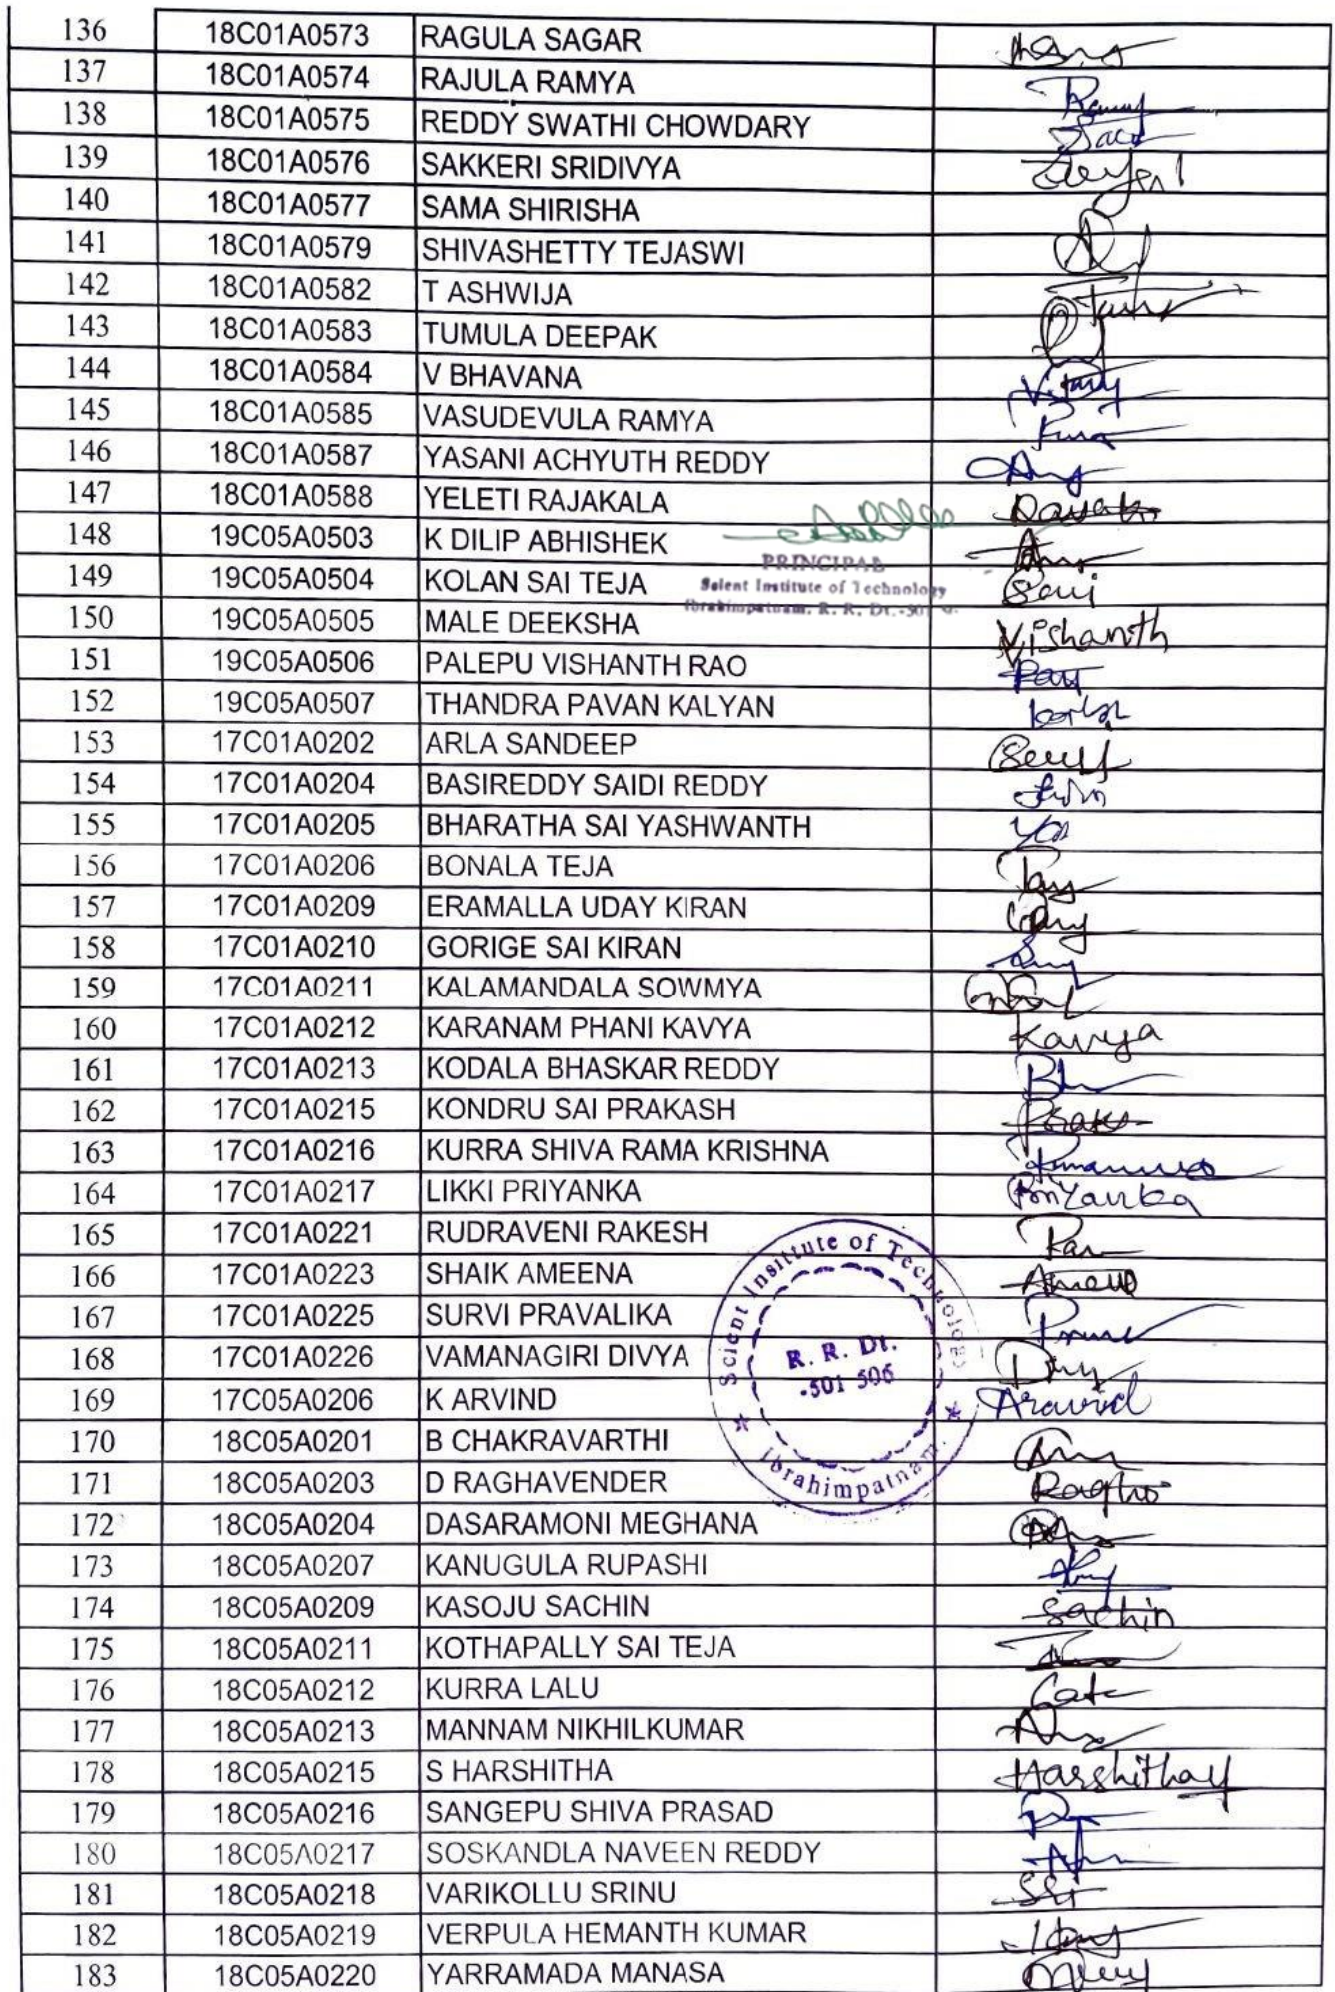 136 18C01A0573 RAGULA SAGAR
137 18C01A0574 RAJULA RAMYA
138 18C01A0575 REDDY SWATHI CHOWDARY
139 18C01A0576 SAKKERI SRIDIVYA
140 18C01A0577 SAMA SHIRISHA
141 18C01A0579 SHIVASHETTY TEJASWI
142 18C01A0582 T ASHWIJA
143 18C01A0583 TUMULA DEEPAK
144 18C01A0584 V BHAVANA
145 18C01A0585 VASUDEVULA RAMYA
146 18C01A0587 YASANI ACHYUTH REDDY
147 18C01A0588 YELETI RAJAKALA
148 19C05A0503 K DILIP ABHISHEK
PRINCIPAL
149 19C05A0504 KOLAN SAI TEJA
Scient Institute of Technology
Ibrahimpatnam, R. R. Dt.-501
150 19C05A0505 MALE DEEKSHA Vishanth
151 19C05A0506 PALEPU VISHANTH RAO
152 19C05A0507 THANDRA PAVAN KALYAN
153 17C01A0202 ARLA SANDEEP
154 17C01A0204 BASIREDDY SAIDI REDDY
155 17C01A0205 BHARATHA SAI YASHWANTH
156 17C01A0206 BONALA TEJA
157 17C01A0209 ERAMALLA UDAY KIRAN
158 17C01A0210 GORIGE SAI KIRAN
159 17C01A0211 KALAMANDALA SOWMYA
160 17C01A0212 KARANAM PHANI KAVYA Kavya
161 17C01A0213 KODALA BHASKAR REDDY
162 17C01A0215 KONDRU SAI PRAKASH
163 17C01A0216 KURRA SHIVA RAMA KRISHNA
164 17C01A0217 LIKKI PRIYANKA Priyanka
165 17C01A0221 RUDRAVENI RAKESH
166 17C01A0223 SHAIK AMEENA
167 17C01A0225 SURVI PRAVALIKA
168 17C01A0226 VAMANAGIRI DIVYA
Scient Insittute of Technology
R. R. Dt.
-501 506
Ibrahimpatnam.
169 17C05A0206 K ARVIND Aravind
170 18C05A0201 B CHAKRAVARTHI
171 18C05A0203 D RAGHAVENDER
172 18C05A0204 DASARAMONI MEGHANA
173 18C05A0207 KANUGULA RUPASHI
174 18C05A0209 KASOJU SACHIN Sachin
175 18C05A0211 KOTHAPALLY SAI TEJA
176 18C05A0212 KURRA LALU
177 18C05A0213 MANNAM NIKHILKUMAR
178 18C05A0215 S HARSHITHA Harshitha
179 18C05A0216 SANGEPU SHIVA PRASAD
180 18C05A0217 SOSKANDLA NAVEEN REDDY
181 18C05A0218 VARIKOLLU SRINU
182 18C05A0219 VERPULA HEMANTH KUMAR
183 18C05A0220 YARRAMADA MANASA